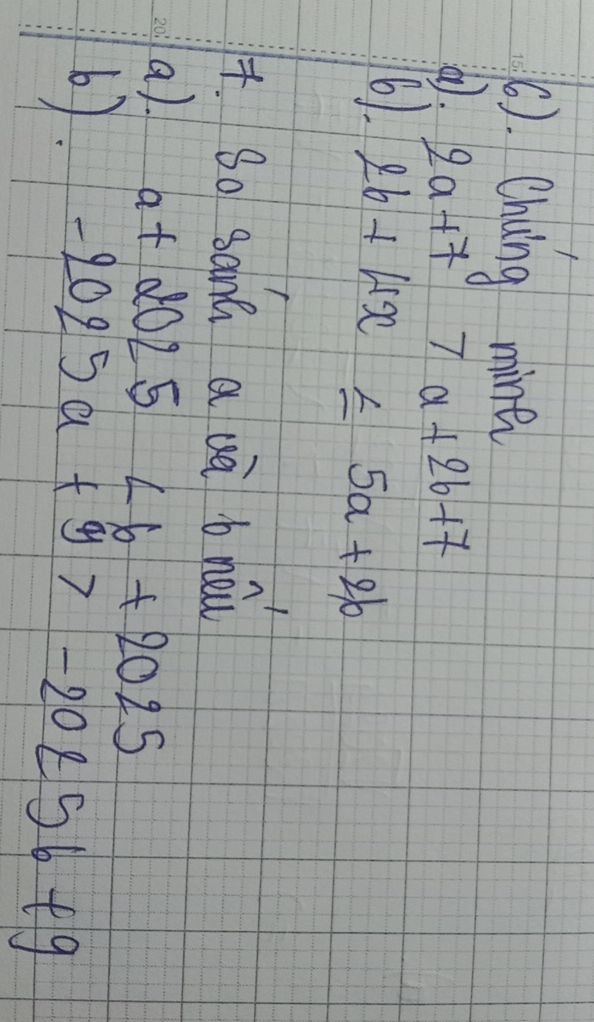 6). Chứng minh
a). 2a + 7 > a + 2b + 7
b). 2b + 4x ≤ 5a + 2b
7. So sánh a và b nếu
a). a + 2025 < b + 2025
b). -2025a + 9 > -2025b + 9